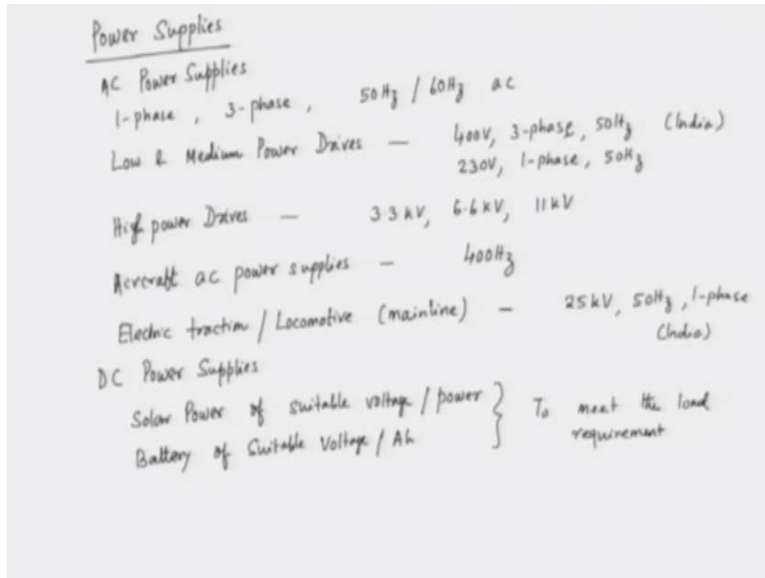 Power Supplies
AC Power Supplies
1-phase , 3-phase , 50Hz / 60Hz ac
Low & Medium Power Drives — 400V, 3-phase, 50Hz (India)
230V, 1-phase, 50Hz
High power Drives — 3.3kV, 6.6kV, 11kV
Aircraft ac power supplies — 400Hz
Electric traction / Locomotive (mainline) — 25kV, 50Hz, 1-phase
(India)
DC Power Supplies
Solar Power of suitable voltage / power } To meet the load
Battery of Suitable Voltage / Ah requirement